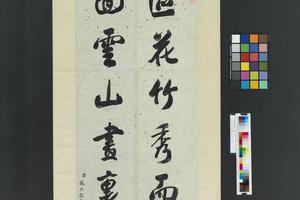 區花竹秀而
面雲山畫裏